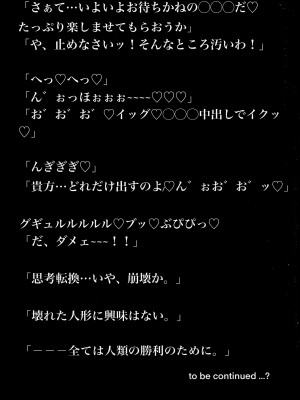 「さぁて…いよいよお待ちかねの◯◯◯だ♡
たっぷり楽しませてもらおうか」
「や、止めなさいッ！そんなところ汚いわ！」
「へっ♡へっ♡」
「ん゛ぉっほぉぉぉ~~~~♡♡♡」
「お゛お゛お゛♡イッグ♡◯◯◯中出しでイクッ
♡」
「んぎぎぎ♡」
「貴方…どれだけ出すのよ♡ん゛ぉお゛お゛ッ♡」
グギュルルルルル♡ブッ♡ぶぴぴっ♡
「だ、ダメェ~~~！！」
「思考転換…いや、崩壊か。」
「壊れた人形に興味はない。」
「－－－全ては人類の勝利のために。」
to be continued ...?